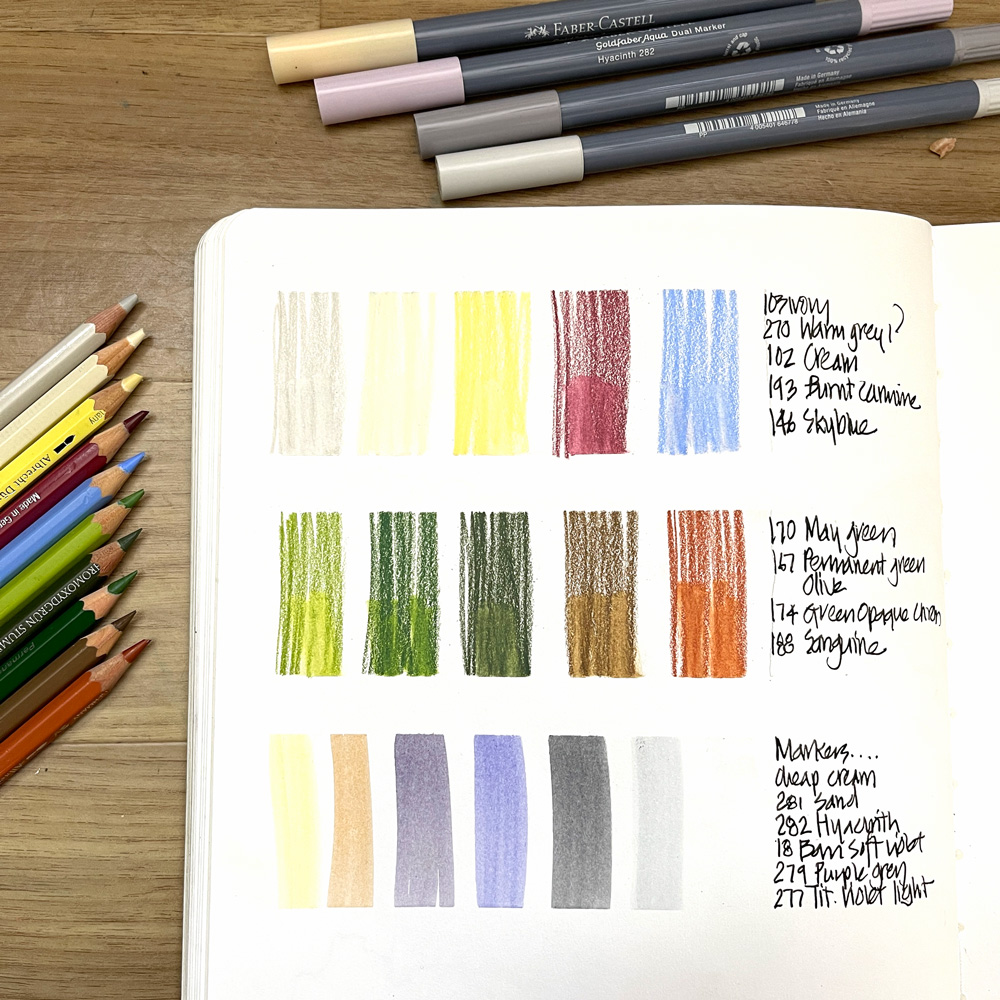 FABER-CASTELL
Goldfaber Aqua Dual Marker
Hyacinth 282
Made in Germany
Fabriqué en Allemagne
4 005401 646778
Made in Germany
Fabriqué en Allemagne
Hecho en Alemania
103 ivory
270 Warm grey 1?
102 Cream
193 Burnt Carmine
146 Skyblue
any
Albrecht Dü
Made in Ge
ROMOXYDGRÜN STUM
Perman
170 May green
167 Permanent green
Olive
174 Green Opaque Chrom
188 Sanguine
Markers....
cheap cream
281 Sand
282 Hyacinth
18 Soft Violet
279 Purple grey
277 Tit. Violet light